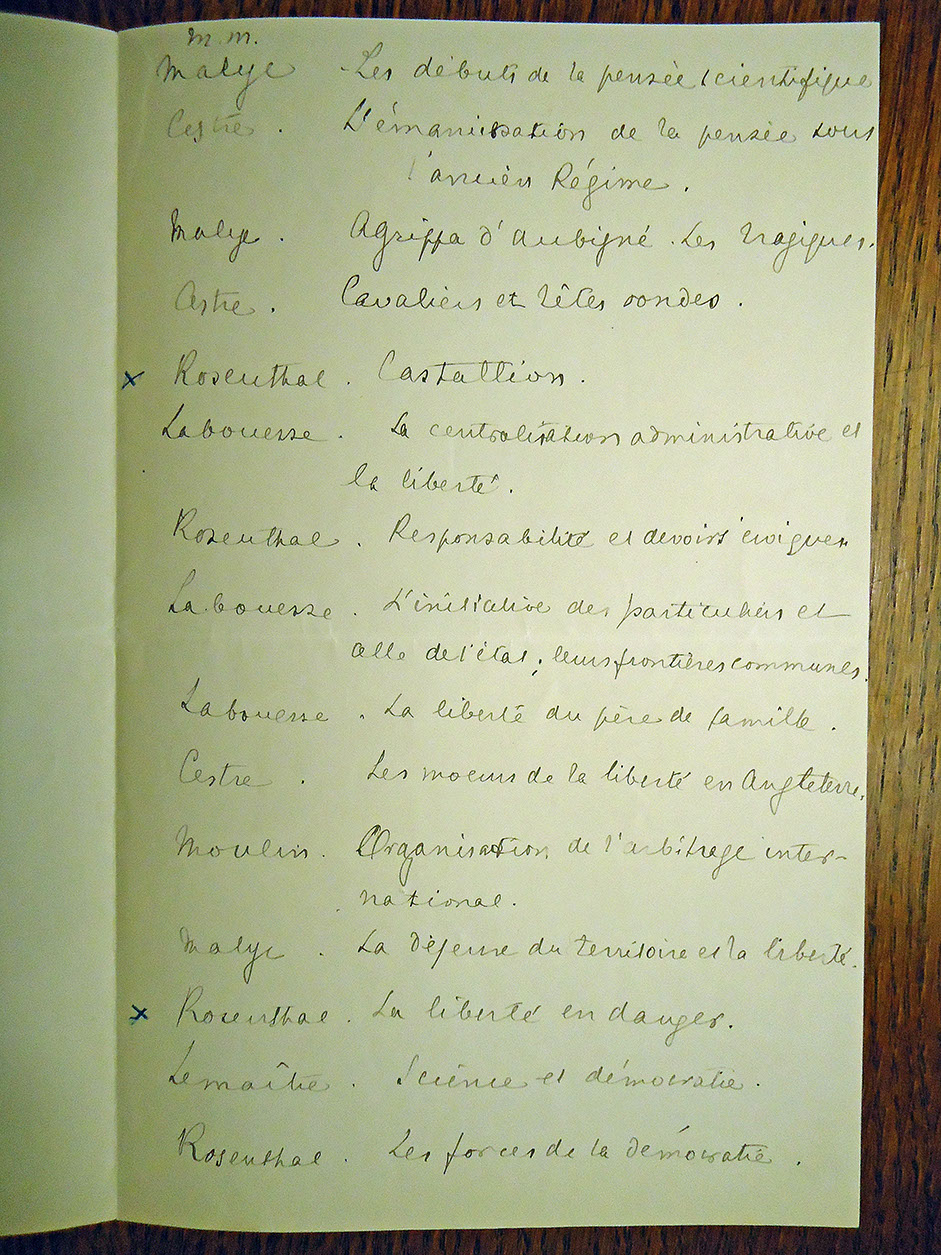 M. M.
Malye Les débuts de la pensée scientifique
Cestre . L'émancipation de la pensée sous
l'ancien Régime .
Malye . Agrippa d'Aubigné . Les Tragiques .
Cestre . Cavaliers et têtes rondes .
x Rosenthal . Castallion .
Labouesse . La centralisation administrative et
la liberté .
Rosenthal . Responsabilité et devoirs civiques
Labouesse . L'initiative des particuliers et
celle de l'état ; leurs frontières communes .
Labouesse . La liberté du père de famille .
Cestre . Les moeurs de la liberté en Angleterre .
Moulin . Organisation de l'arbitrage inter-
national .
Malye . La défense du territoire et la liberté .
x Rosenthal . La liberté en danger .
Lemaître . Science et démocratie .
Rosenthal . Les forces de la démocratie .